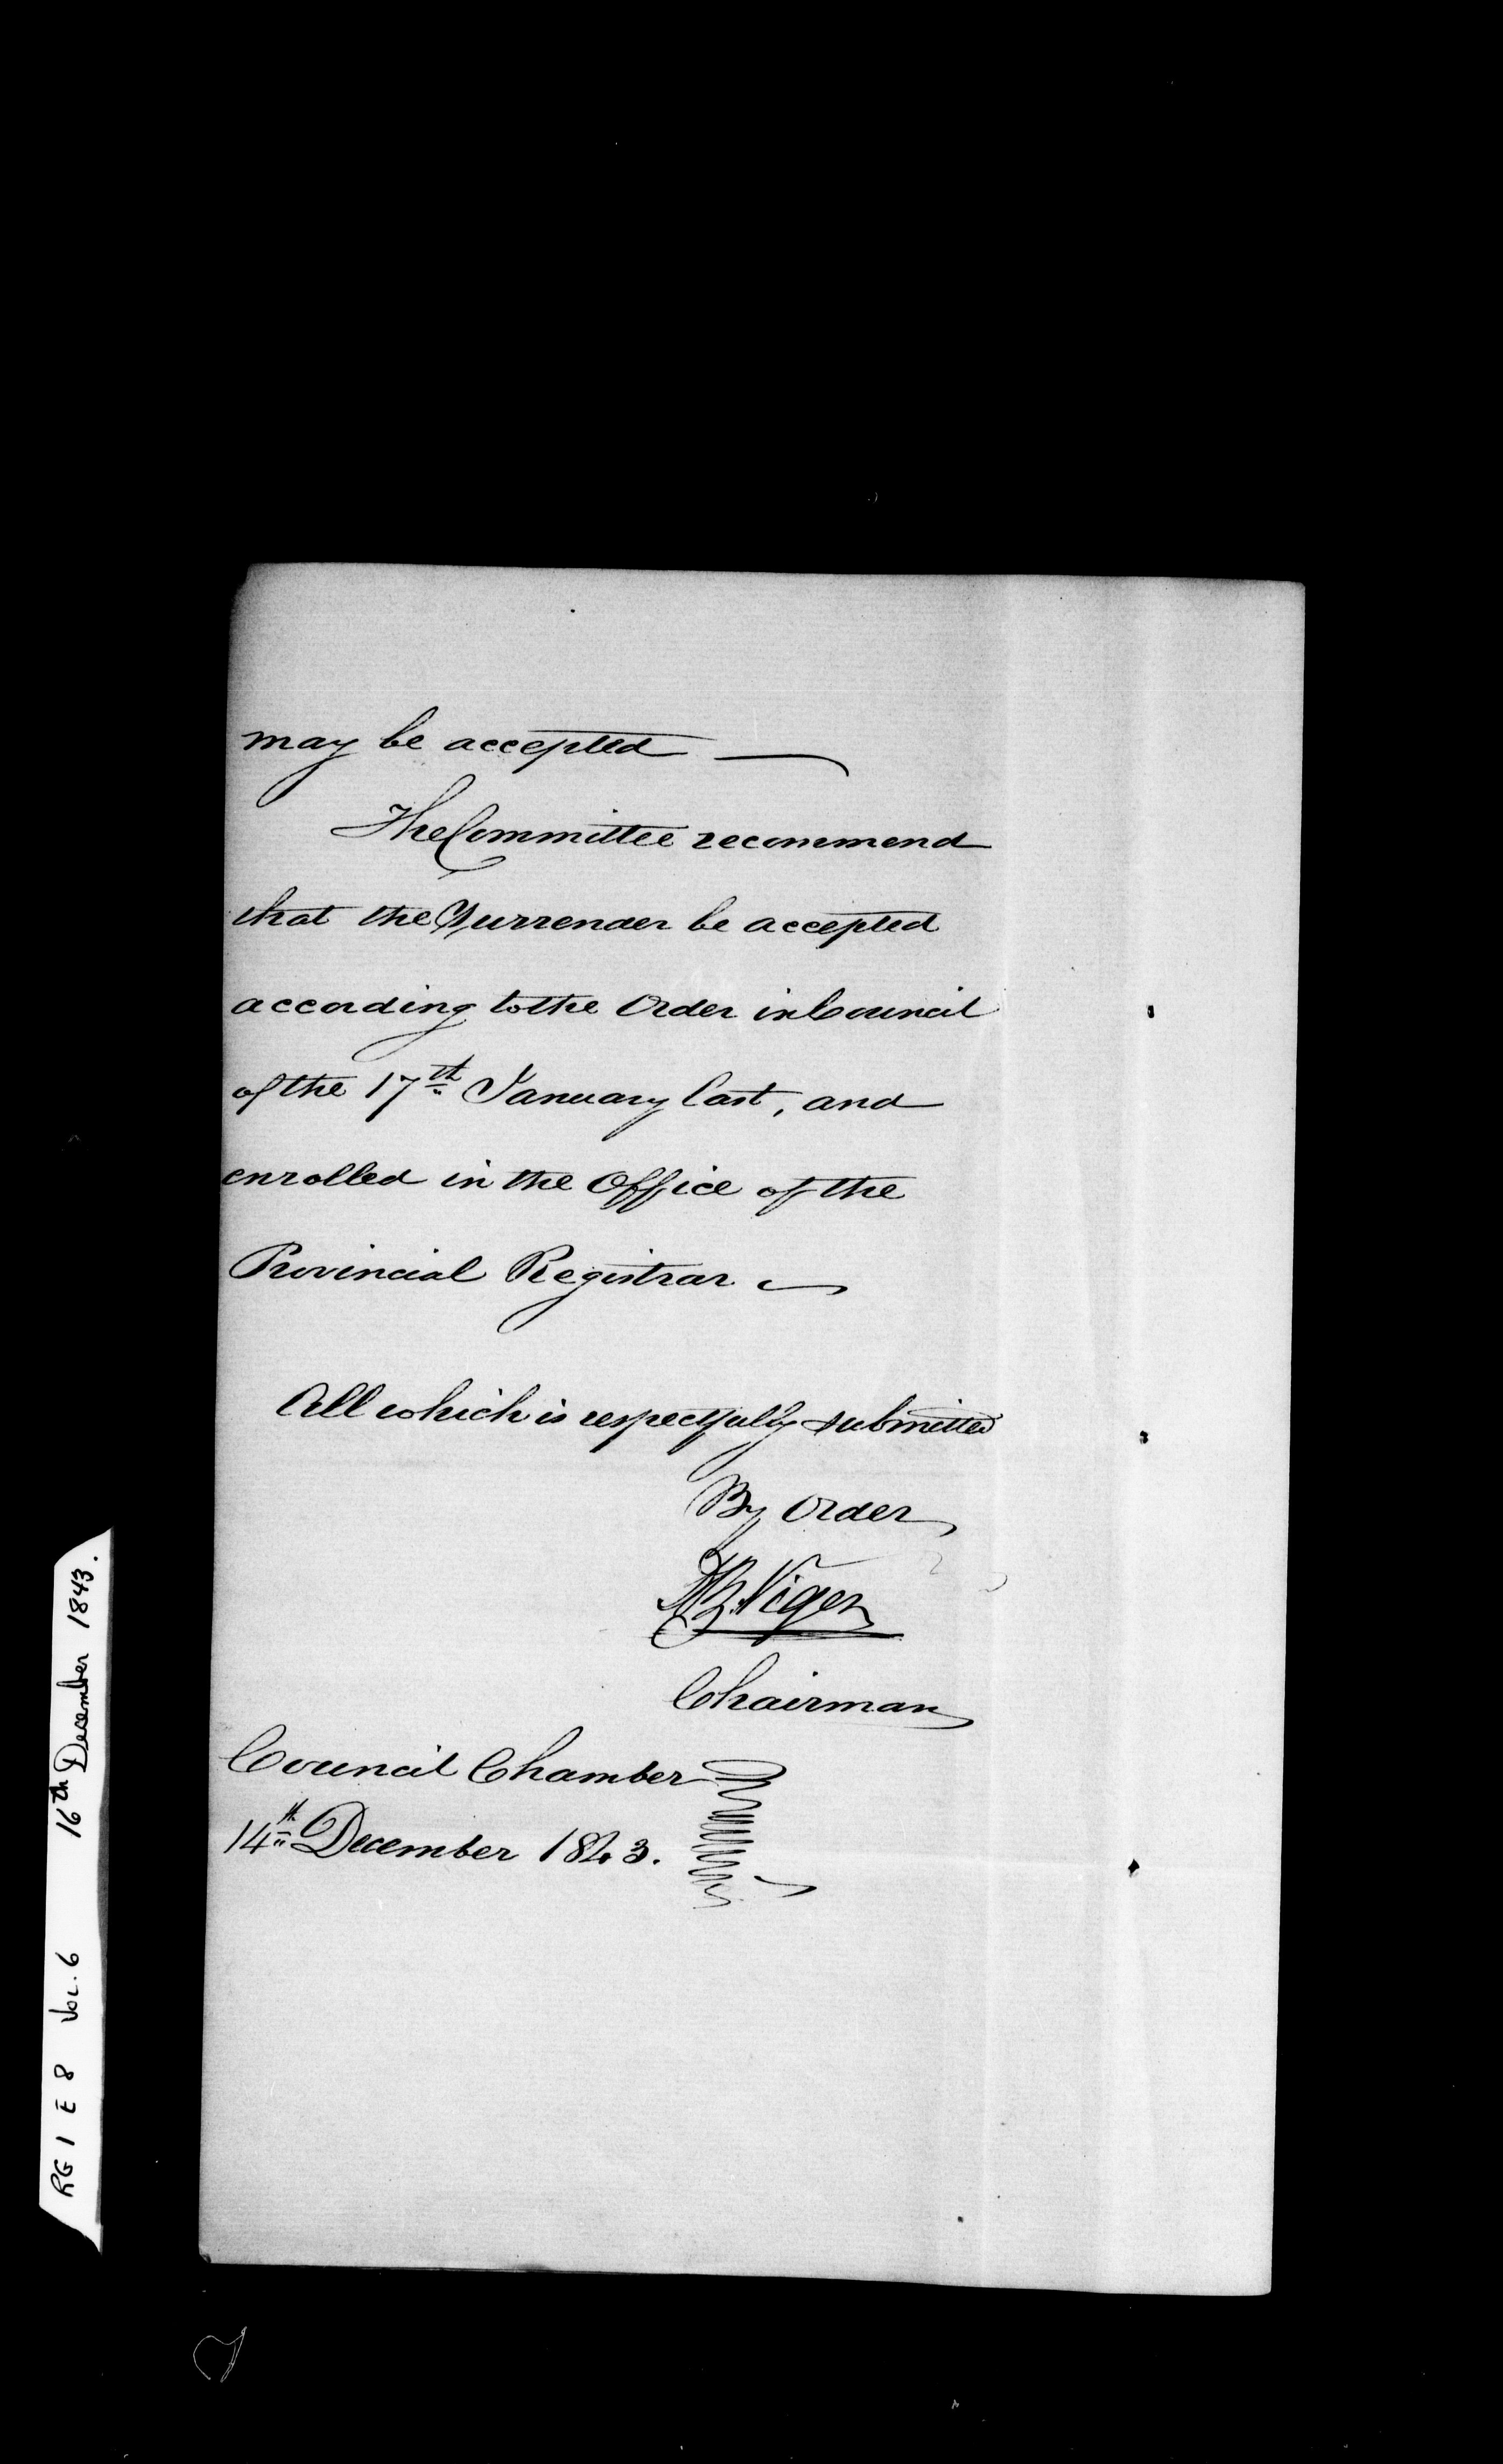 may be accepted —
The Committee recommend
that the Surrender be accepted
according to the Order in Council
of the 17th January last, and
enrolled in the Office of the
Provincial Registrar —
All which is respectfully submitted
By Order
DB. Viger
Chairman
Council Chamber
14th December 1843.
RG 1 E 8 Vol. 6 16th December 1843.